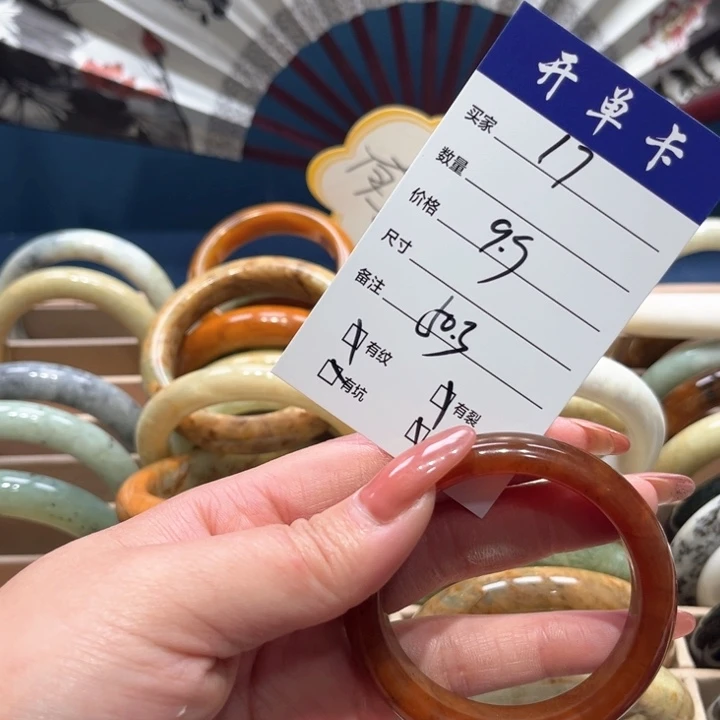 开单卡
买家 17
数量
价格 9.5
尺寸
备注 60.3
有纹
有坑
有裂